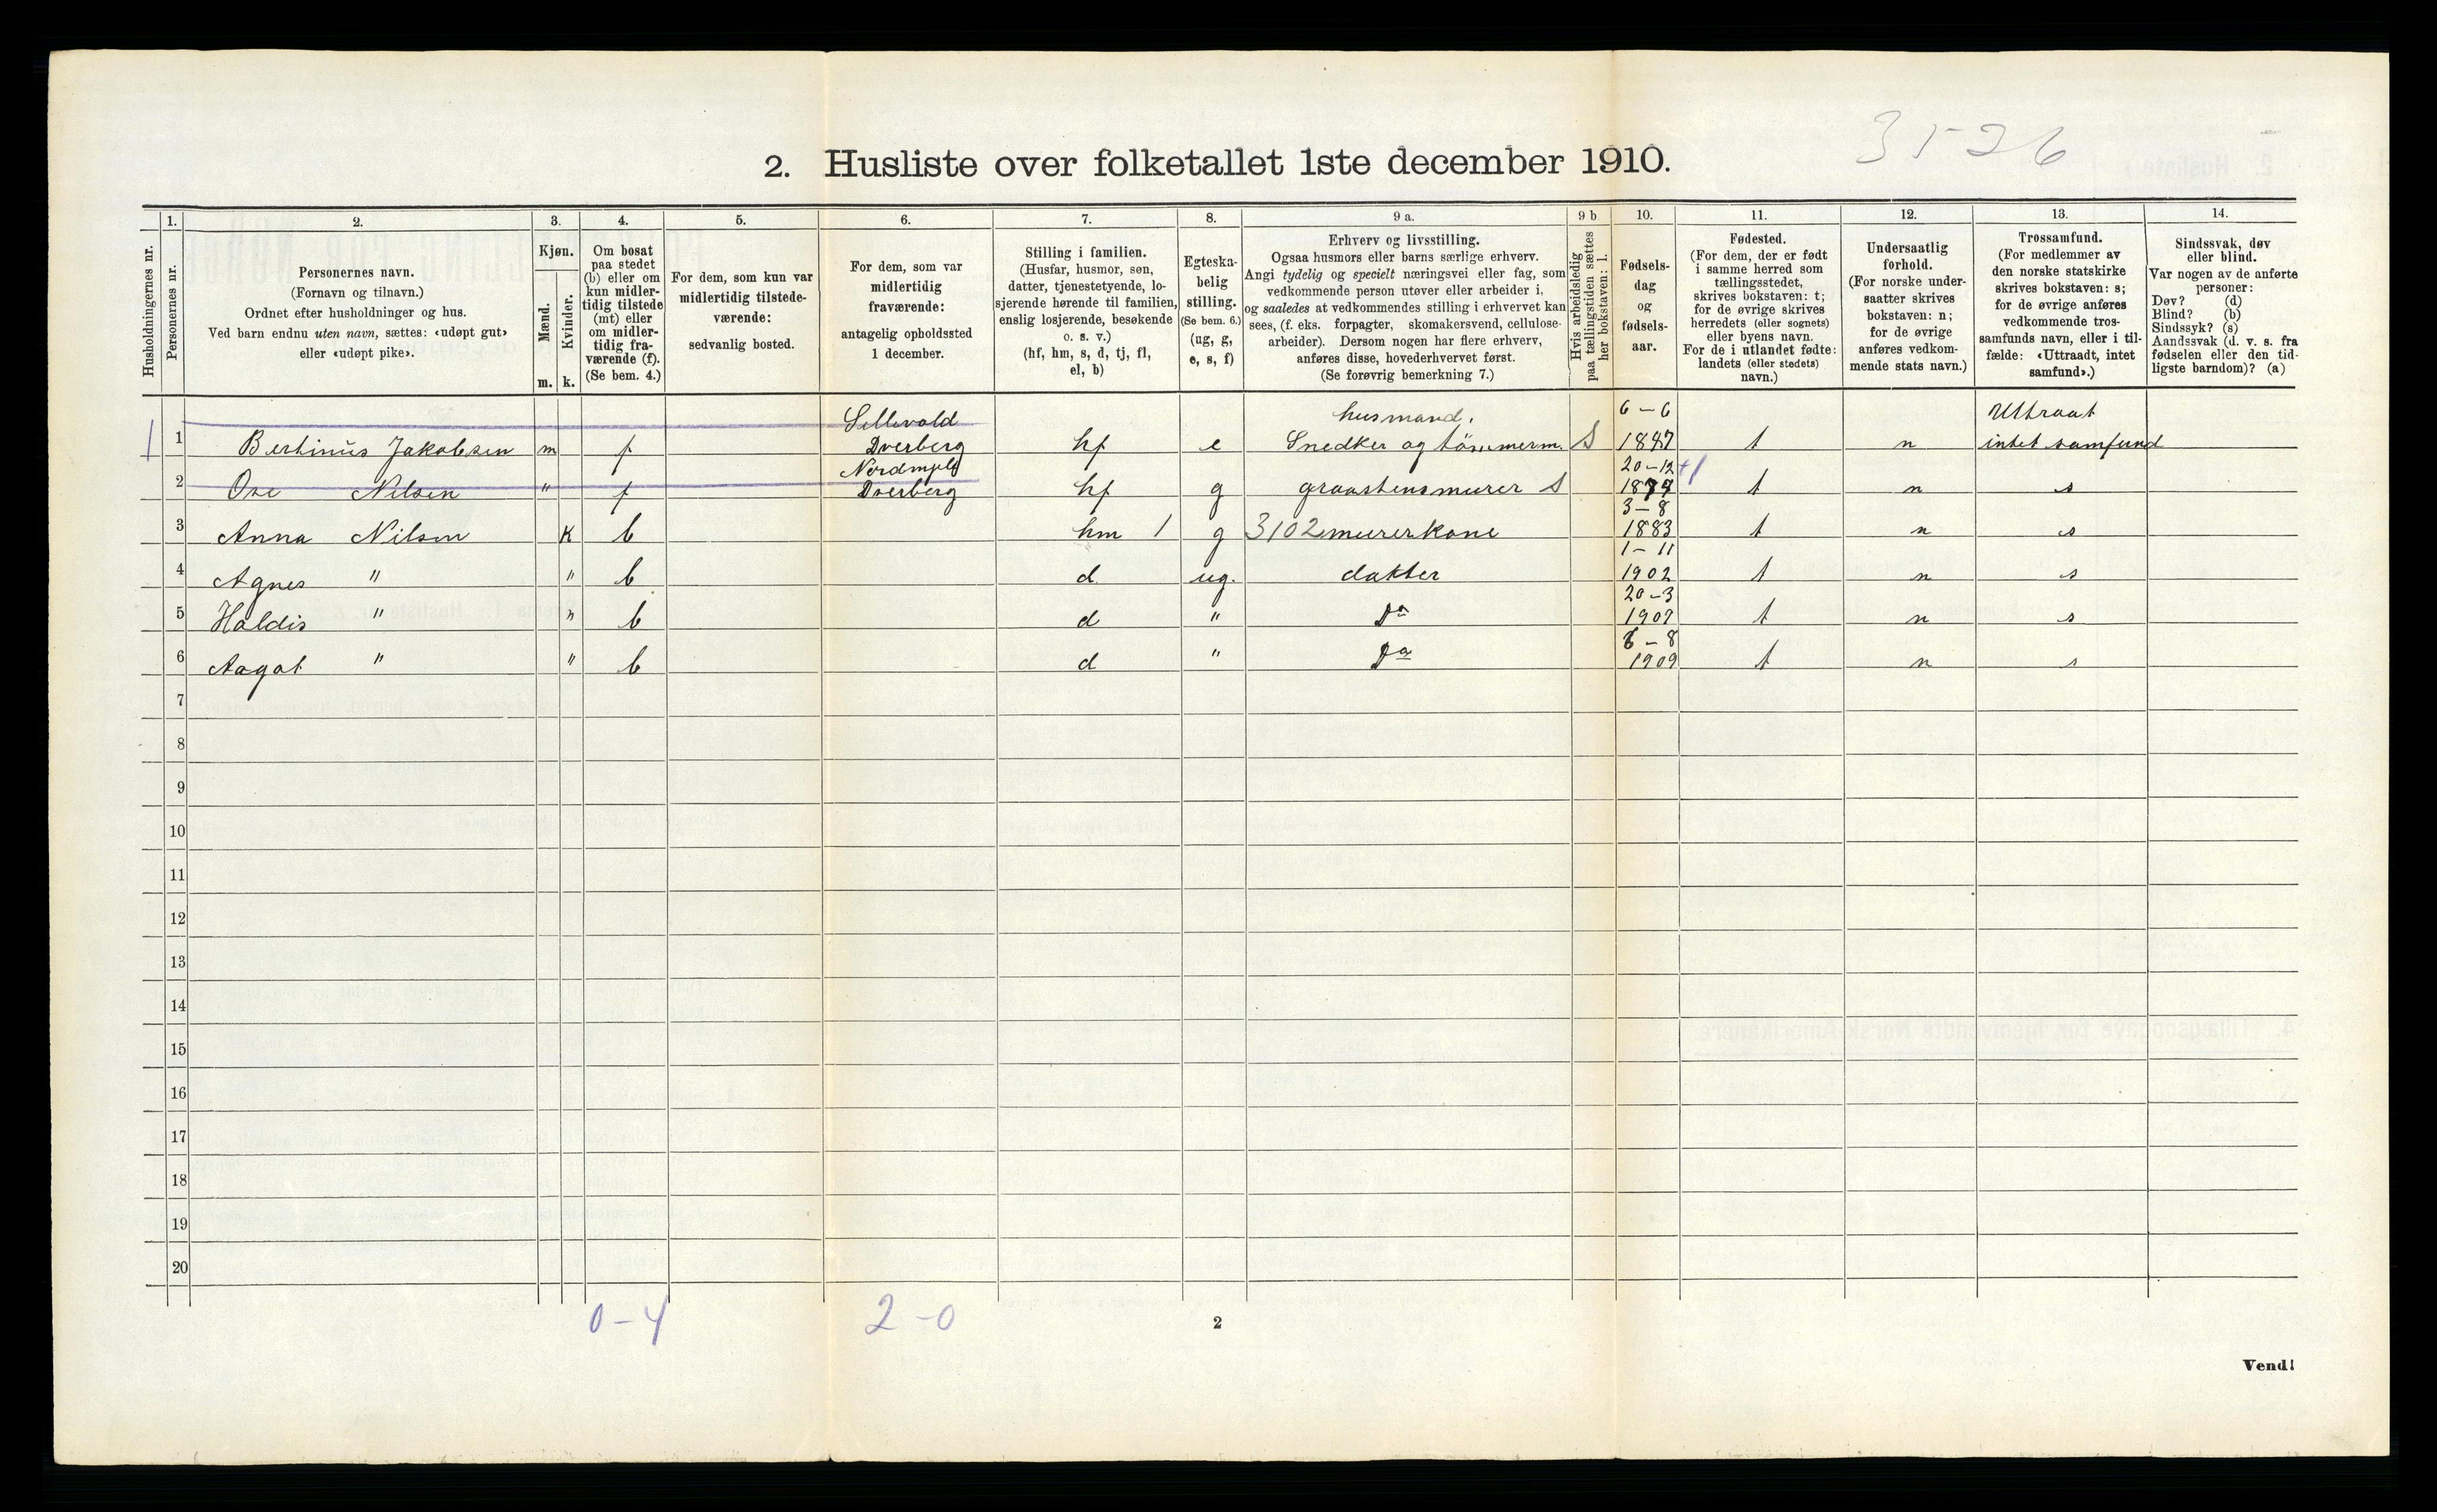 3526
2. Husliste over folketallet 1ste december 1910.
Husholdningernes nr.
1.
Personernes nr.
2.
Personernes navn.
(Fornavn og tilnavn.)
Ordnet efter husholdninger og hus.
Ved barn endnu uten navn, sættes: «udøpt gut»
eller «udøpt pike».
3.
Kjøn.
Mænd.
Kvinder.
m. k.
4.
Om bosat
paa stedet
(b) eller om
kun midler-
tidig tilstede
(mt) eller
om midler-
tidig fra-
værende (f).
(Se bem. 4.)
5.
For dem, som kun var
midlertidig tilstede-
værende:
sedvanlig bosted.
6.
For dem, som var
midlertidig
fraværende:
antagelig opholdssted
1 december.
7.
Stilling i familien.
(Husfar, husmor, søn,
datter, tjenestetyende, lo-
sjerende hørende til familien,
enslig losjerende, besøkende
o. s. v.)
(hf, hm, s, d, tj, fl,
el, b)
8.
Egteska-
belig
stilling.
(Se bem. 6.)
(ug, g,
e, s, f)
9 a.
Erhverv og livsstilling.
Ogsaa husmors eller barns særlige erhverv.
Angi tydelig og specielt næringsvei eller fag, som
vedkommende person utøver eller arbeider i,
og saaledes at vedkommendes stilling i erhvervet kan
sees, (f. eks. forpagter, skomakersvend, cellulose-
arbeider). Dersom nogen har flere erhverv,
anføres disse, hovederhvervet først.
(Se forøvrig bemerkning 7.)
9 b
Hvis arbeidsledig
paa tællingstiden sættes
her bokstaven: l.
10.
Fødsels-
dag
og
fødsels-
aar.
11.
Fødested.
(For dem, der er født
i samme herred som
tællingsstedet,
skrives bokstaven: t;
for de øvrige skrives
herredets (eller sognets)
eller byens navn.
For de i utlandet fødte:
landets (eller stedets)
navn.)
12.
Undersaatlig
forhold.
(For norske under-
saatter skrives
bokstaven: n;
for de øvrige
anføres vedkom-
mende stats navn.)
13.
Trossamfund.
(For medlemmer av
den norske statskirke
skrives bokstaven: s;
for de øvrige anføres
vedkommende tros-
samfunds navn, eller i til-
fælde: «Uttraadt, intet
samfund».)
14.
Sindssvak, døv
eller blind.
Var nogen av de anførte
personer:
Døv? (d)
Blind? (b)
Sindssyk? (s)
Aandssvak (d. v. s. fra
fødselen eller den tid-
ligste barndom)? (a)
Sellevold husmand. 6-6 Uttraat
1 1 Bertinus Jakobsen m f Dverberg hf e Snedker og tömmerm. S 1847 t n intet samfund
Nordmjele 20-12 +1
2 Ove Nilsen " f Dverberg hf g graastensmurer S 1879 t n s
3-8
3 Anna Nilsen K b hm 1 g 3102 murerkone 1883 t n s
1-11
4 Agnes " " b d ug. dakter 1902 t n s
20-3
5 Haldis " " b d " Do 1907 t n s
6-8
6 Aagot " " b d " Do 1909 t n s
7
8
9
10
11
12
13
14
15
16
17
18
19
20
0-4 2-0
2
Vend!